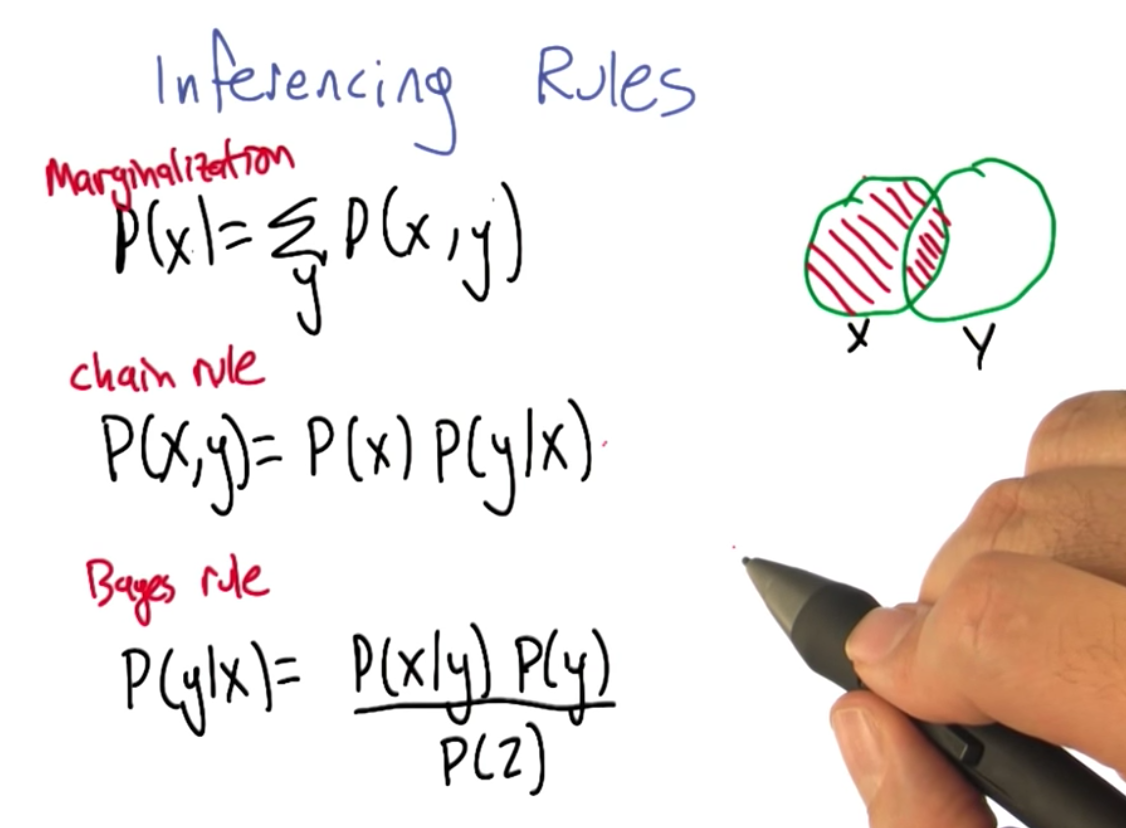 Inferencing Rules
Marginalization
P(x)= Σ P(x,y)
y
X Y
chain rule
P(X,y)= P(x) P(y|x)
Bayes rule
P(y|x)= P(x|y) P(y)
P(2)